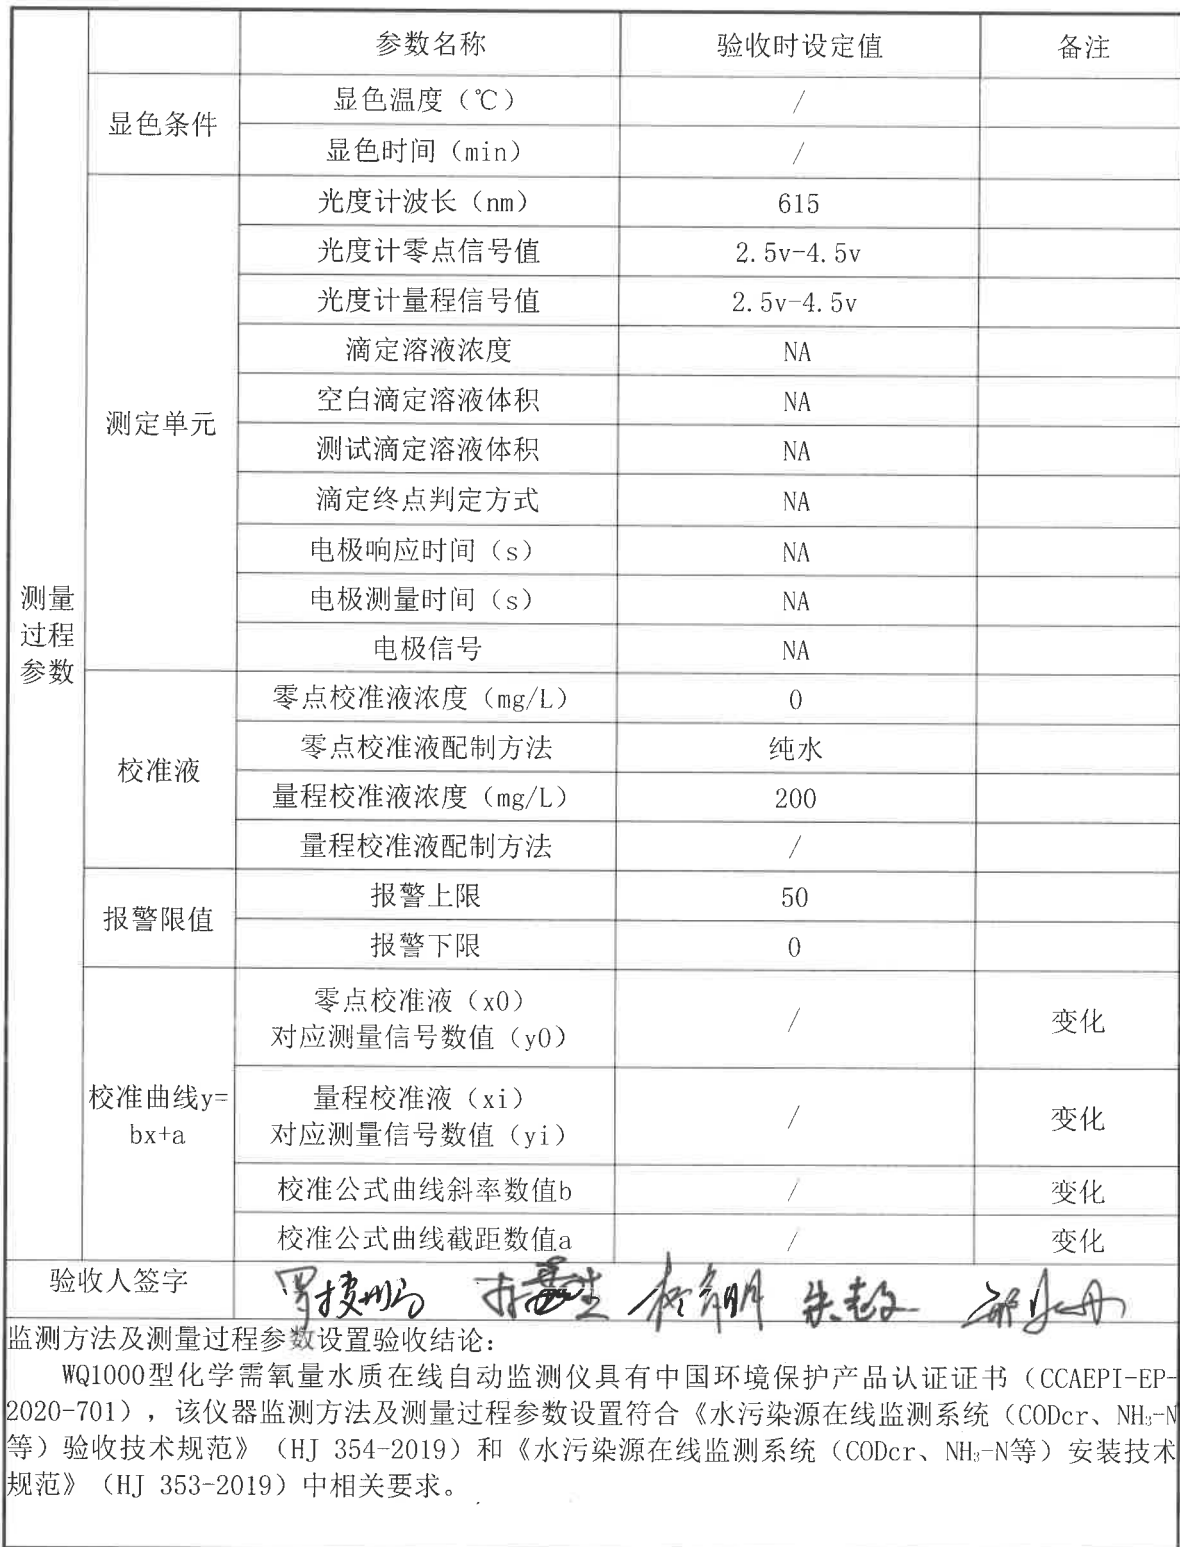 参数名称 验收时设定值 备注
显色条件 显色温度（℃） /
显色时间（min） /
测定单元 光度计波长（nm） 615
光度计零点信号值 2.5v-4.5v
光度计量程信号值 2.5v-4.5v
滴定溶液浓度 NA
空白滴定溶液体积 NA
测试滴定溶液体积 NA
滴定终点判定方式 NA
电极响应时间（s） NA
电极测量时间（s） NA
电极信号 NA
测量
过程
参数
校准液 零点校准液浓度（mg/L） 0
零点校准液配制方法 纯水
量程校准液浓度（mg/L） 200
量程校准液配制方法 /
报警限值 报警上限 50
报警下限 0
校准曲线y=
bx+a
零点校准液（x0）
对应测量信号数值（y0） / 变化
量程校准液（xi）
对应测量信号数值（yi） / 变化
校准公式曲线斜率数值b / 变化
校准公式曲线截距数值a / 变化
验收人签字
监测方法及测量过程参数设置验收结论：
WQ1000型化学需氧量水质在线自动监测仪具有中国环境保护产品认证证书（CCAEPI-EP-
2020-701），该仪器监测方法及测量过程参数设置符合《水污染源在线监测系统（CODcr、NH₃-N
等）验收技术规范》（HJ 354-2019）和《水污染源在线监测系统（CODcr、NH₃-N等）安装技术
规范》（HJ 353-2019）中相关要求。